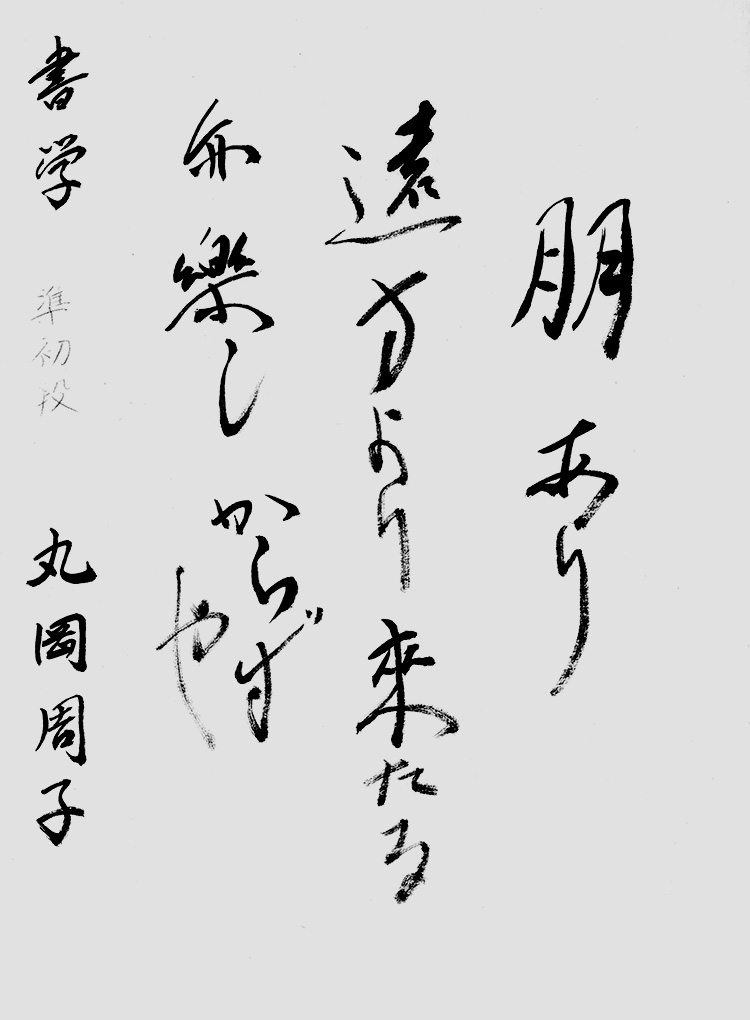 朋あり
遠方より来たる
亦樂しからずや
書学 準初段 丸岡周子